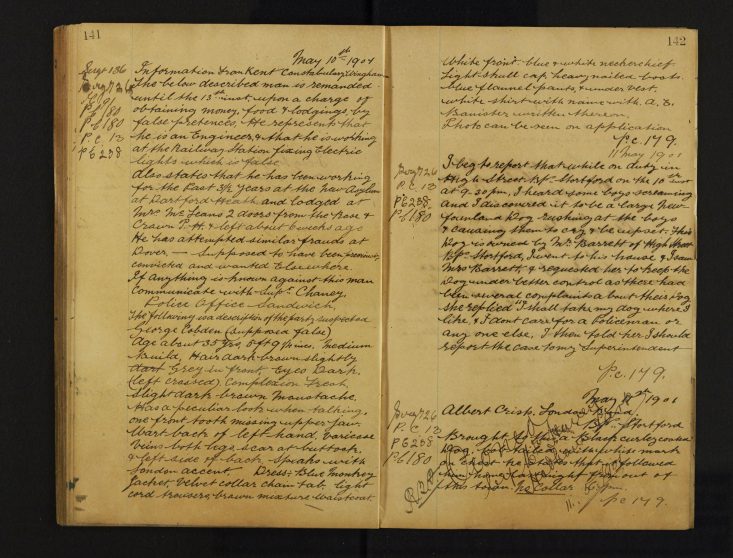 141
May 10th 1901
Sergt 136
P.C. 13
PC 238
Information from Kent Constabulary, Wingham
The below described man is remanded
until the 13th inst. upon a charge of
obtaining money, food & lodgings, by
false pretences. He represents that
he is an Engineer & that he is working
at the Railway Station fixing Electric
lights which is false
Also states that he has been working
for the Past 3½ years at the new Asylum
at Dartford Heath and lodged at
Mrs Mc Leans 2 doors from the Rose &
Crown P.H. & left about 6 weeks ago
He has attempted similar frauds at
Dover, — Supposed to have been previously
convicted and wanted Elsewhere.
If anything is known against this man
Communicate with Supt. Chaney.
Police Office Sandwich
The following is a description of the party suspected
George Cobden (supposed false)
Age about 35 yrs, 5 ft 9 inches. Medium
Build, Hair dark brown slightly
dark grey in front, Eyes Dark.
(left crossed), Complexion Fresh,
Slight dark brown Moustache.
Has a peculiar look when talking.
one front tooth missing upper jaw.
Wart back of left hand, varicose
veins both legs scar at buttock,
& left side of back, speaks with
London accent. Dress: Blue Monkey
Jacket, Velvet collar chain tab, light
cord trousers, brown mixture waistcoat.
142
White front, blue & white neckerchief
Light skull cap heavy nailed boots.
blue flannel pants, & under vest.
white shirt with name with A. E.
Banister written thereon.
Photo can be seen on application
P.c. 179.
11 May 1901
P.C. 13
PC 238.
PC 180
I beg to report that while on duty in
High Street Bp. Stortford on the 10th inst
at 9.30 pm, I heard some boys screaming
and I discovered it to be a large New-
foundland Dog rushing at the boys
& causing them to cry & be upset. This
Dog is owned by Mr Barrett of High Street
Bp. Stortford, I went to his house & I saw
Mrs Barrett, & requested her to keep the
Dog under better control as there had
been several complaints about their Dog
she replied I shall take my dog where I
like, & I dont care for a Policeman or
any one else, I then told her I should
report the case to my Superintendent
P.c. 179.
1901
P.C. 13
PC 238
PC 180
Albert Crisp, London Road,
Bp. Stortford
Brought to a Black curley coated
Dog, with white mark
on chest he states that it followed
him home
this town. no Collar
Pc 179.